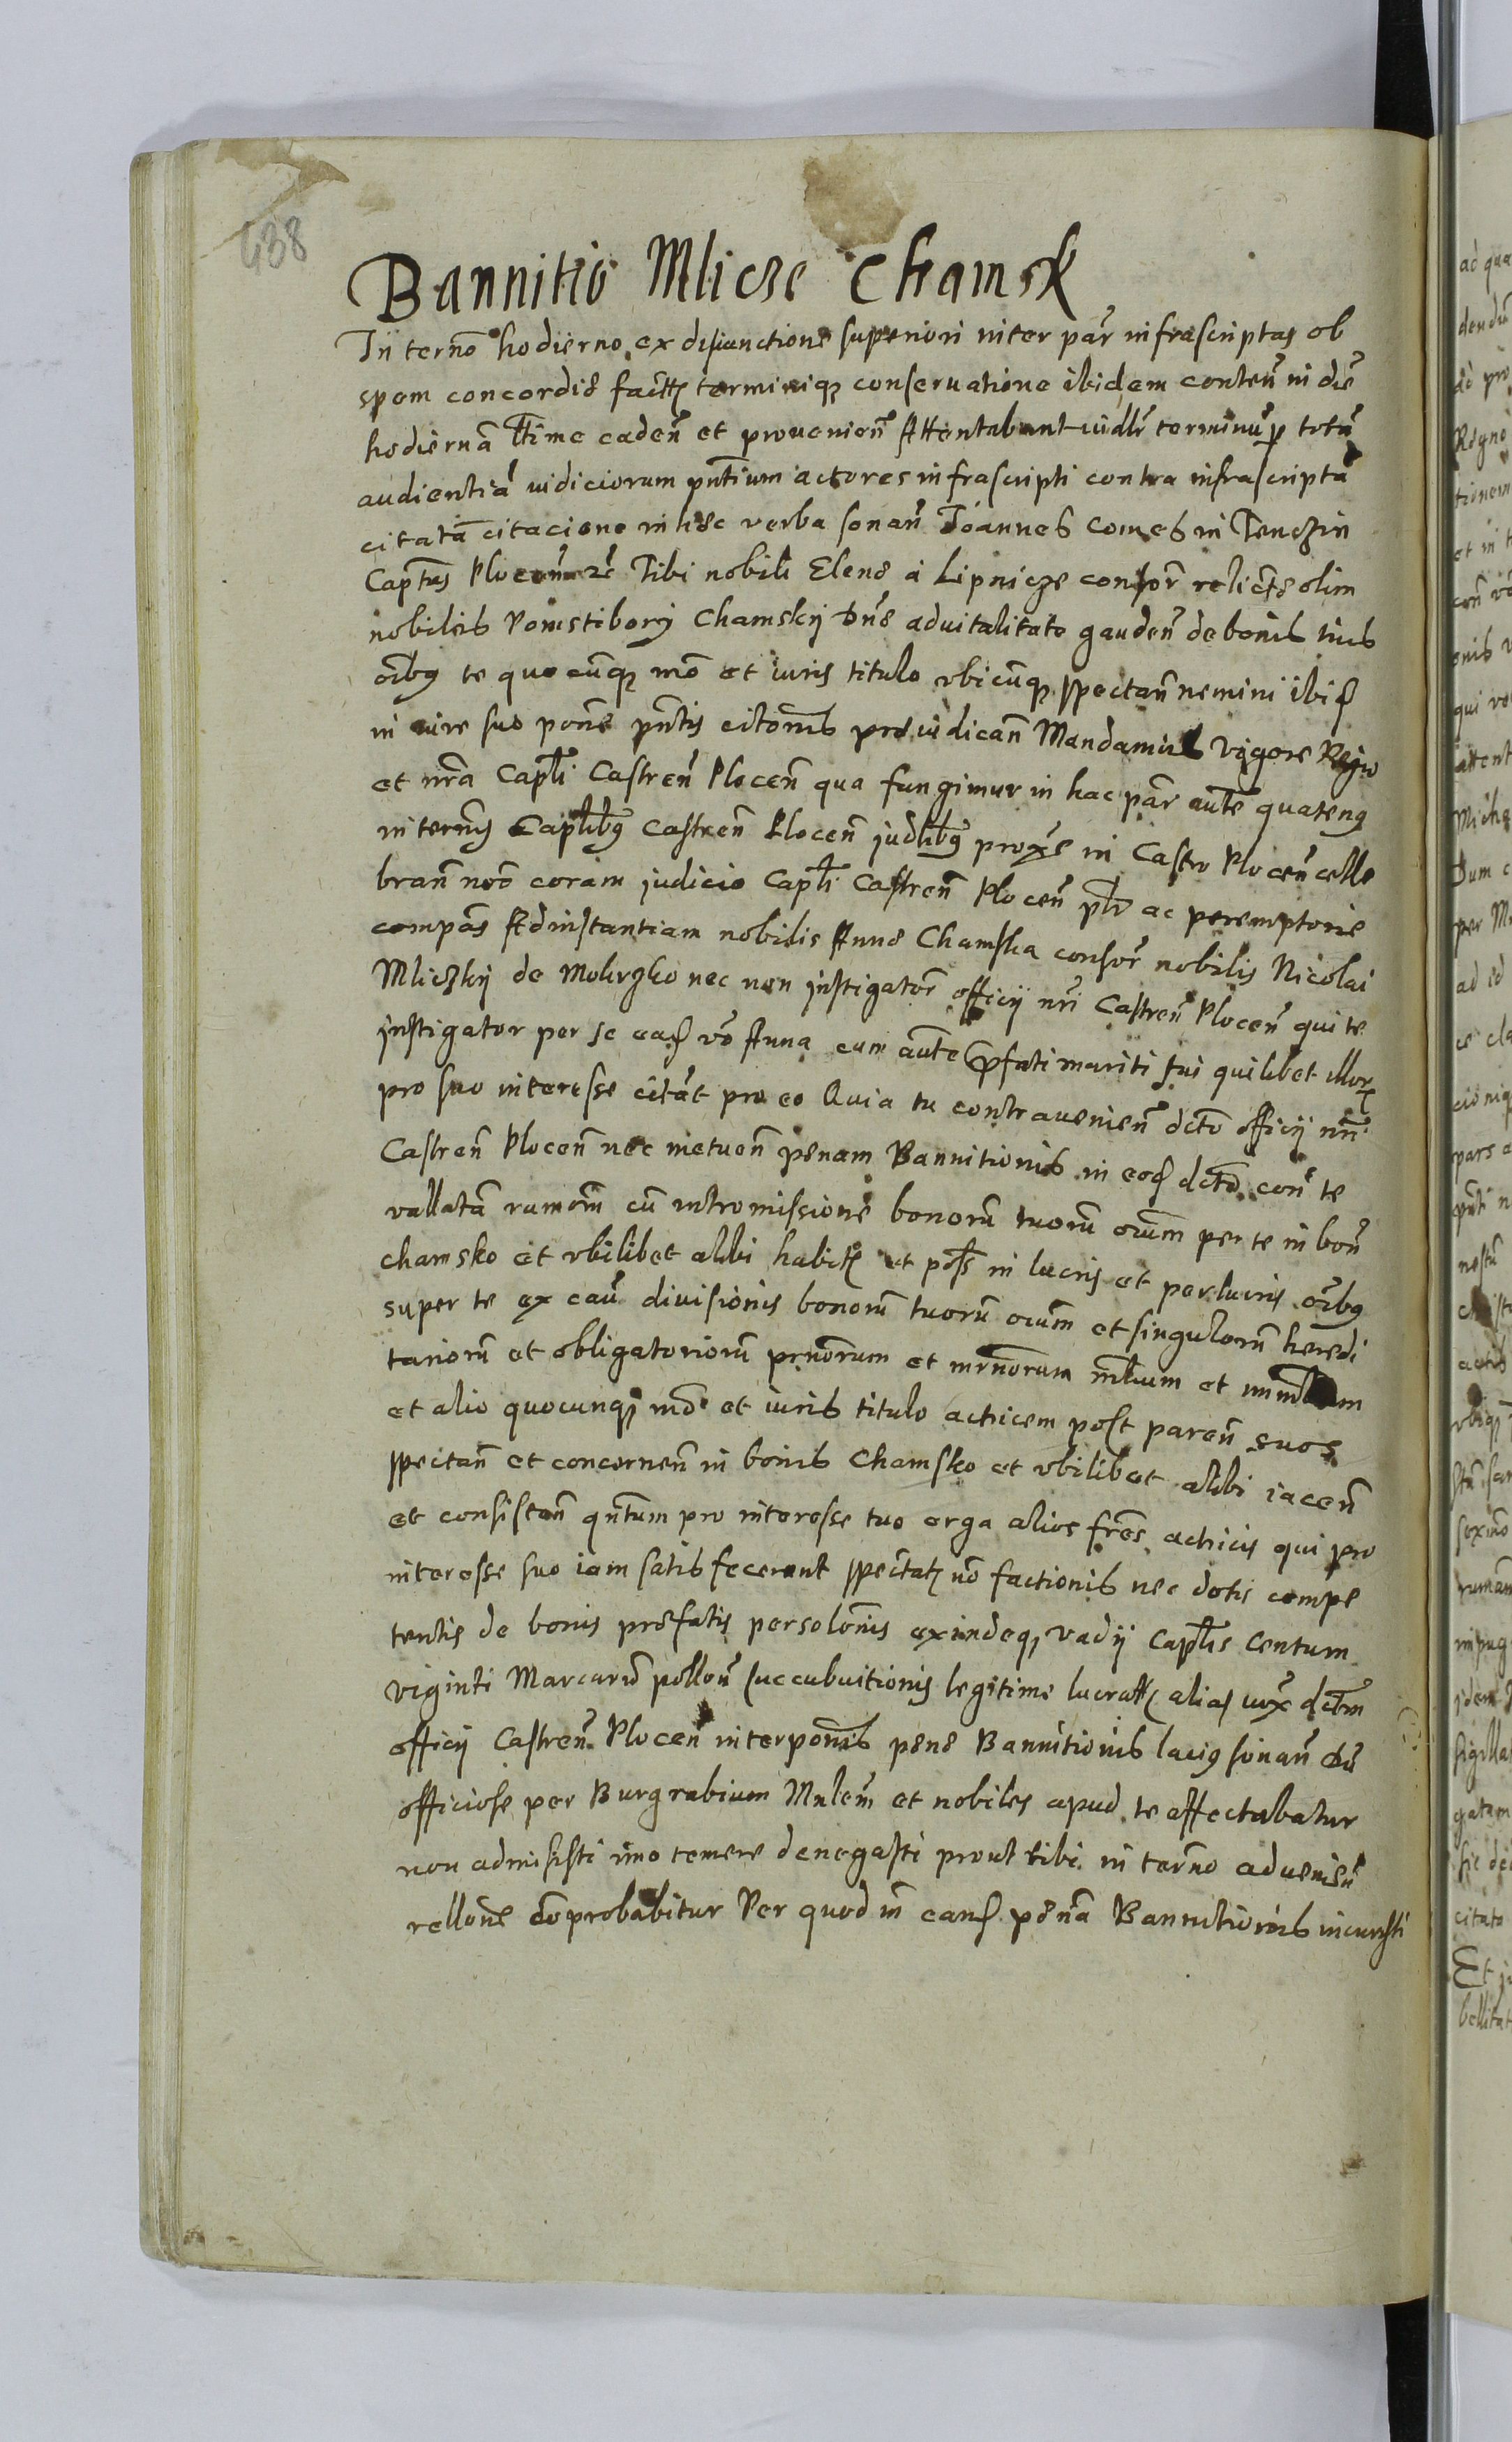 438
Bannitio Mlicze Chamsk
In termo hodierno ex disiunctione superiori inter par infrascriptas ob
spem concordie factm terminiq conseruatione ibidem conten in die
hodierna ltime caden et prouenien Attentabant iudlr terminu p tota
audientia iudiciorum pntium actores infrascripti contra infrascripta
citata citacione in hec verba sonan Joannes Comes in Tenczin
Captus Plocen rc Tibi nobili Elene a Lipnicze consor relicte olim
nobilis Pomstibory Chamskij Dne aduitalitate gauden de bonis tuis
oibg te quocuq mo et iuris titulo vbicuq spectan nemini ibid
in iure suo pone pntis citonis preiudican Mandamus vigore Regio
et nra Capli Castren Plocen qua fungimur in hac par aute quateng
in ternis Caplibg Castren Plocen judlibg proxe in Castro Plocen celle
bran noo coram judicio Capli Castren Plocen plr ac peremptorie
compas Ad instantiam nobilis Anne Chamska consor nobilis Nicolai
Mliczkij de Mokrzko nec non jnstigator officij nri Castren Plocen qui te
jnstigator per se ead vo Anna cum aute pfati mariti sui quilibet illor
pro suo interesse citat pro eo Quia tu contrauenien dcto officij nri
Castren Plocen nec metuen penam Bannitionis in eod dcto con te
vallata rumom cu intromissione bonoru tuoru oium per te in bon
chamsko et vbilibet alibi habit et pos in lucris et perlucris oibg
super te ex cau diuisionis bonoru tuoru oium et singuloru heredi
tarioru et obligatorioru prnorum et mrnorum mlium et immlium
et alio quocunq mo et iuris titulo actricem post paren suos
spectan et concernen in bonis Chamsko et vbilibet alibi iacen
et consisten qntum pro interesse tuo erga alios fres actricis qui pro
interesse suo iam satisfecerunt spectat no factionis nec dotis compe
tentis de bonis prefatis persolonis exindeq vadij Caplis Centum
viginti Marcaru pollon succubuitionis legitime lucratt alias dctm
officij Castren Plocen interponis pene Bannitionis lacig sonan du
officiose per Burgrabium Mnlem et nobiles apud te affectabatur
non admisisti imo temere denegasti prout tibi in termo aduenien
rellone comprobabitur Per quod in eand pena Bannitionis incuristi